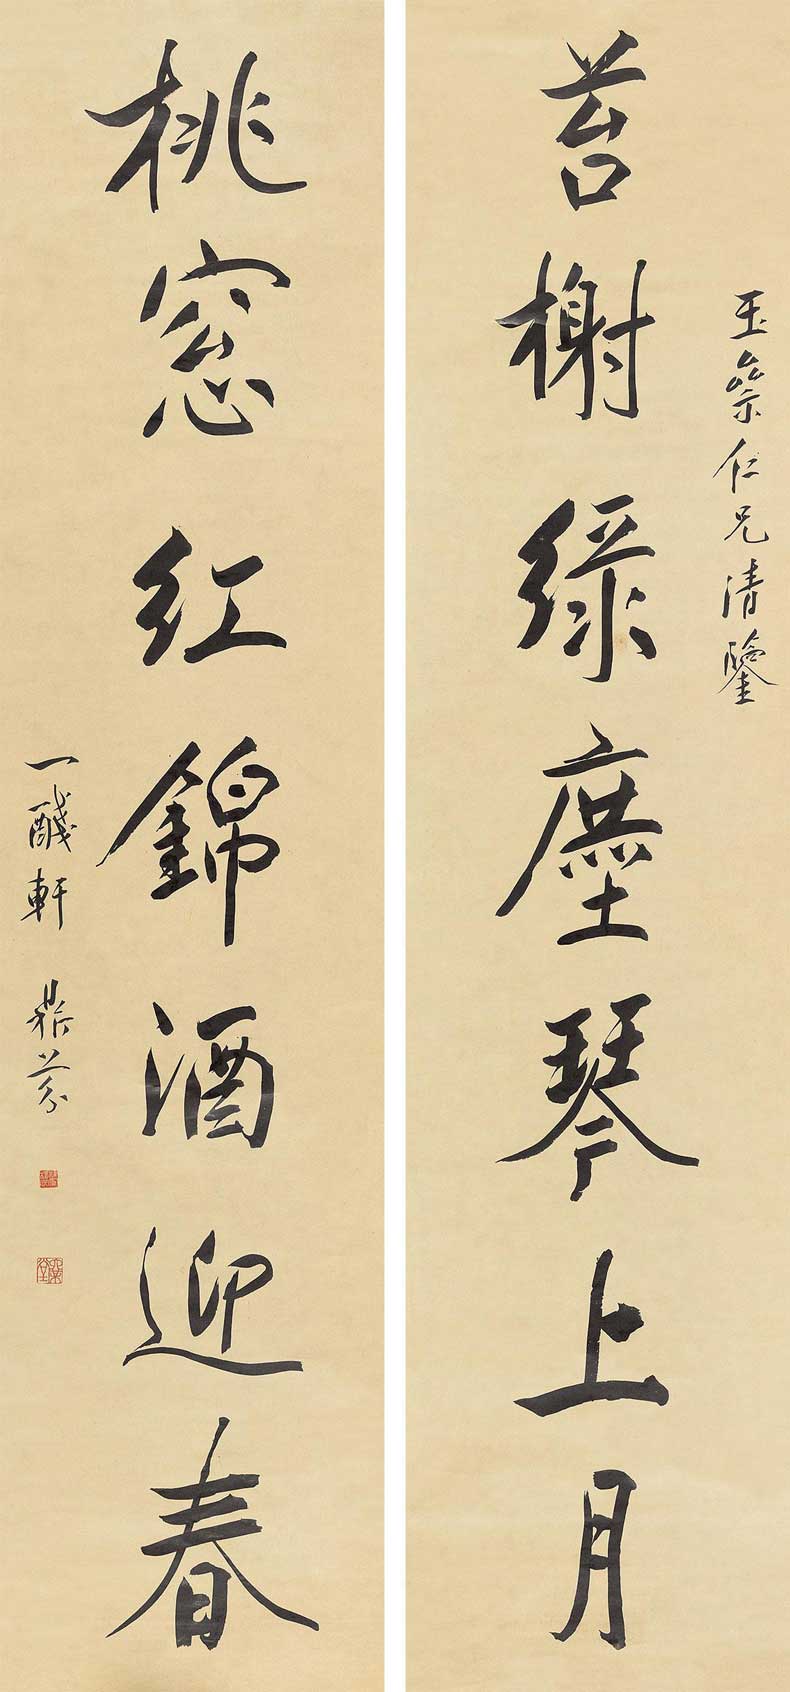 玉叅仁兄清鑒
苔榭綠塵琴上月
桃窓紅錦酒迎春
一醆軒 鼎芬